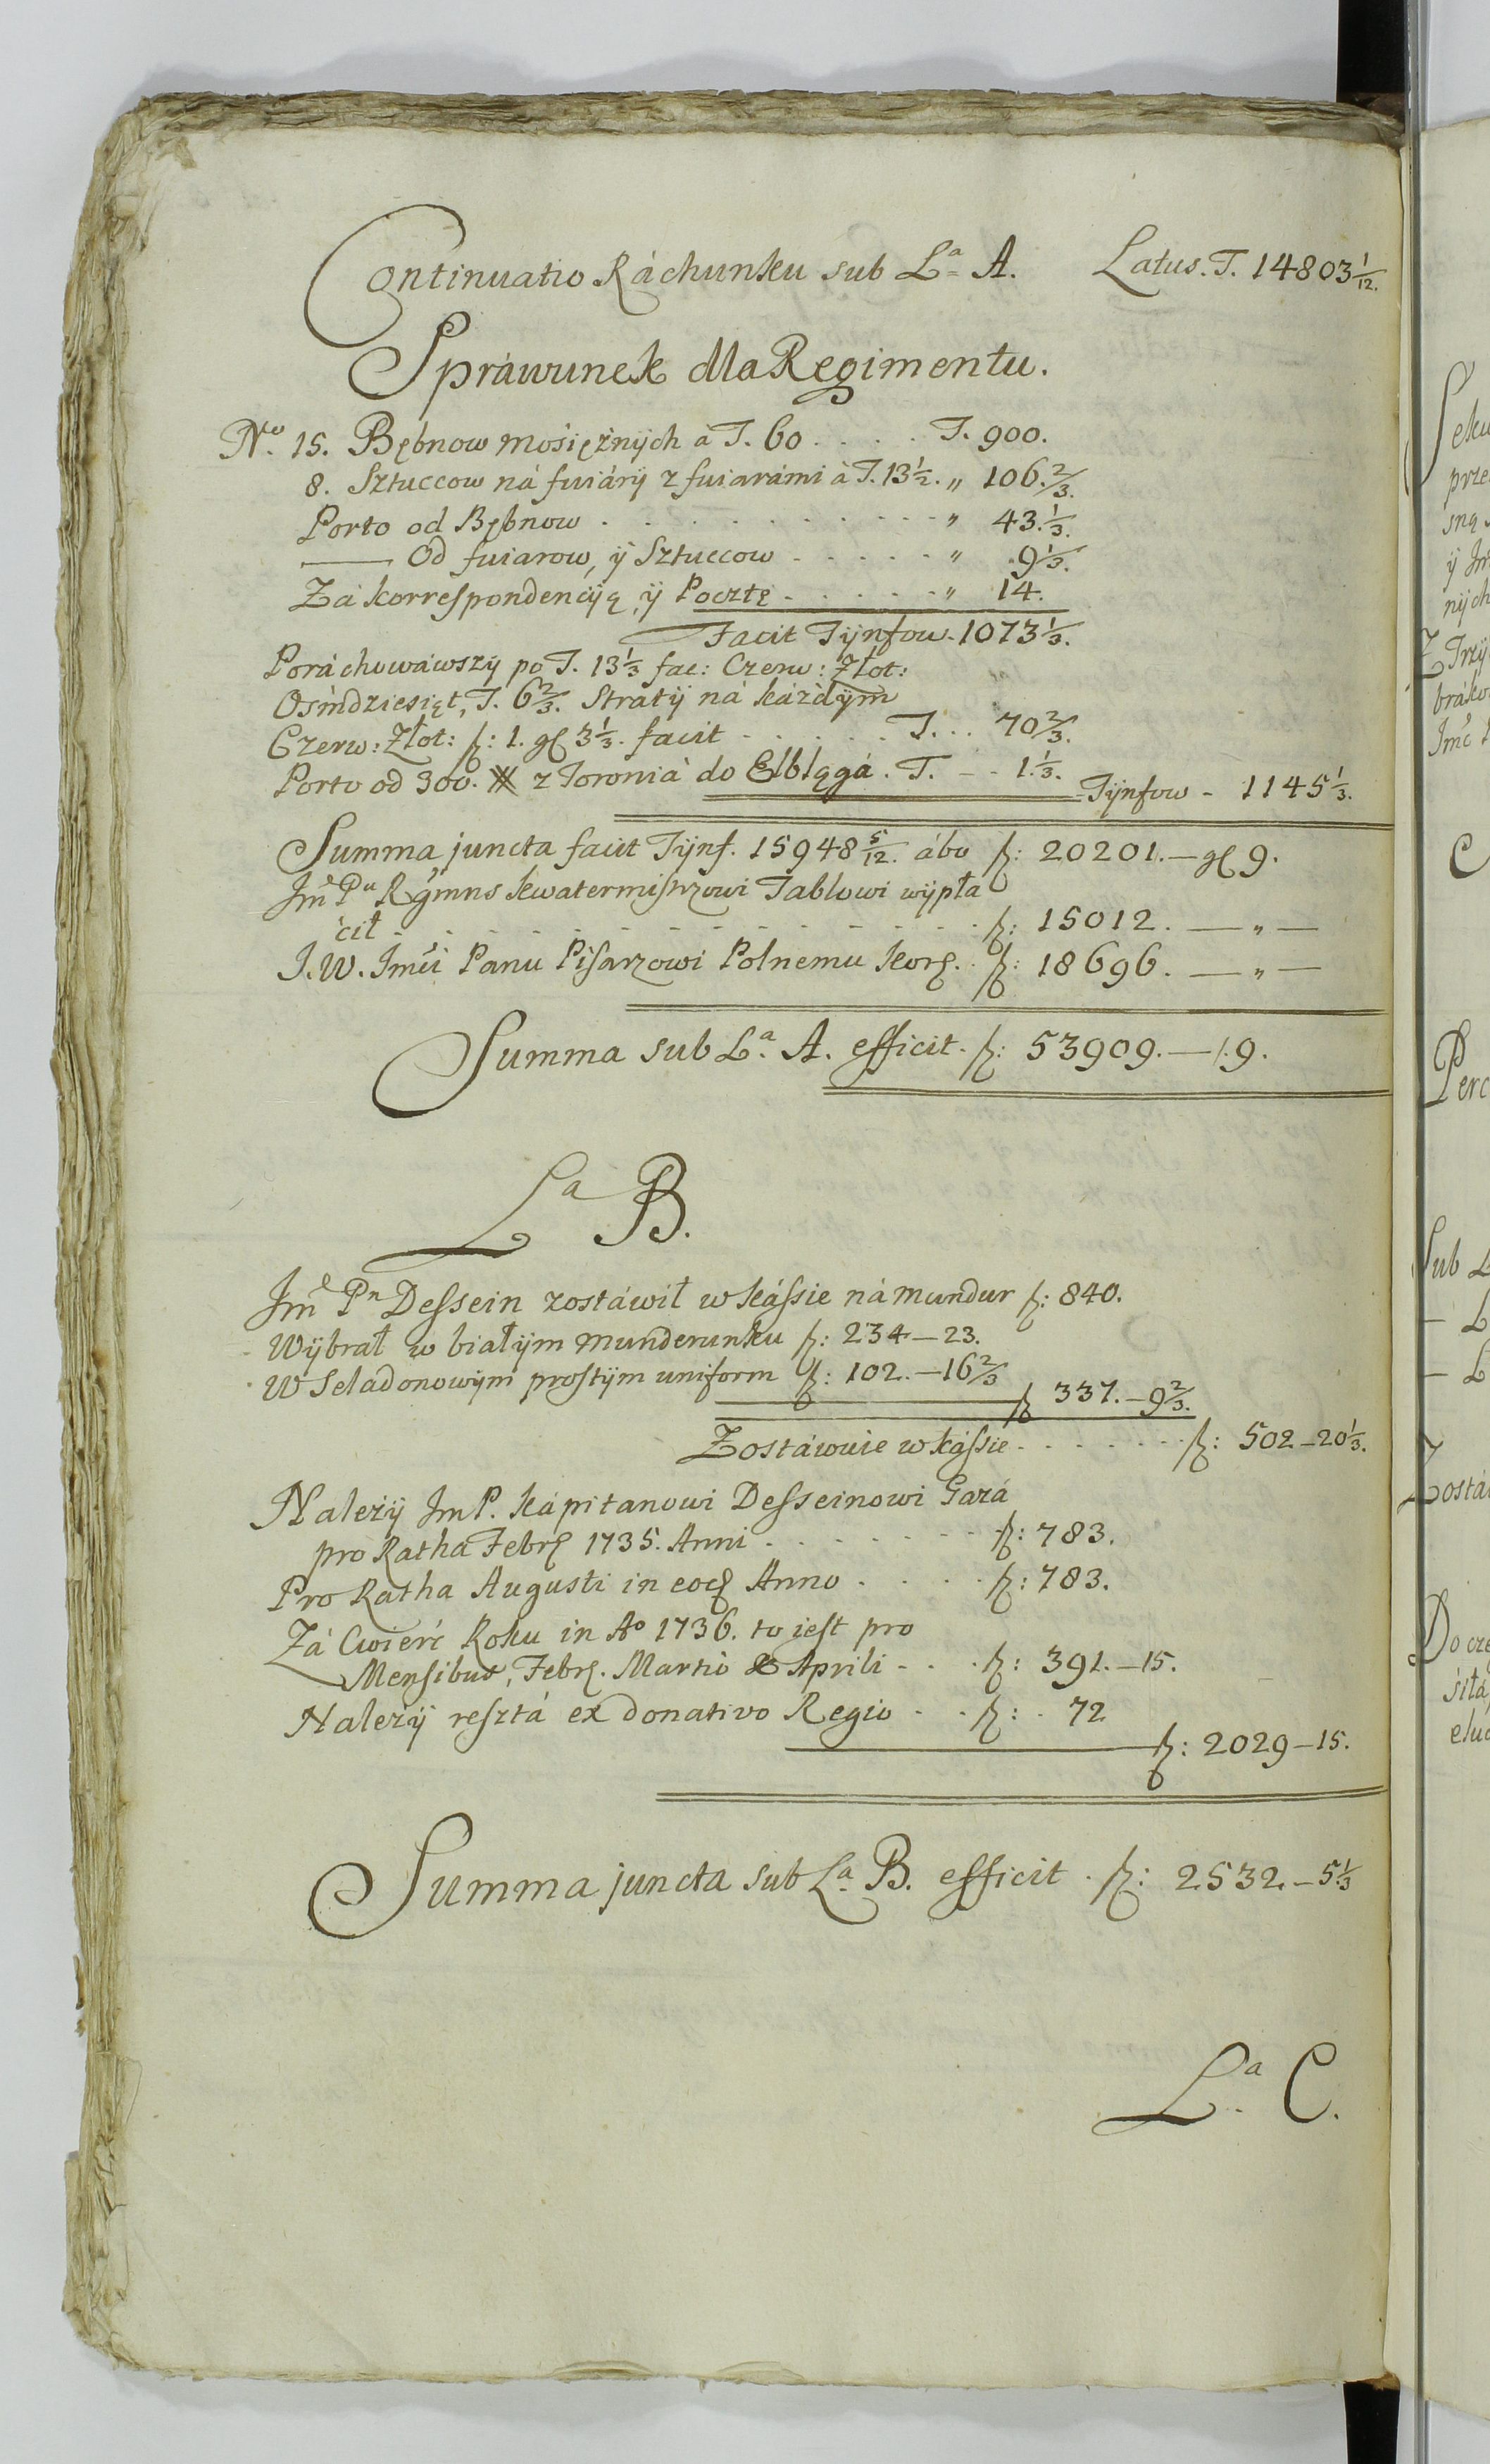 Continuatio Ráchunku sub Lª A. Latus. T. 14803 1/12.
Spráwunek dla Regimentu.
No. 15. Bębnow mośiężnÿch à T. 60 . . . . T. 900.
8. Sztuccow ná fuiárÿ z fuiarámi à T. 13 1/2. „ 106. 2/3.
Porto od Bębnow . . . . . . . . . . „ 43. 1/3.
—— Od fuiarow, ÿ Sztuccow . . . . . „ 9 1/3.
Zá korrespondencÿą, ÿ Pocztę . . . . . „ 14.
Facit Tÿnfow - 1073 1/3.
Poráchowáwszÿ po T. 13 1/3 fac: Czerw: Złot:
Ośmdziesiąt, T. 6 2/3. Stratÿ ná káżdÿm
Czerw: Złot: f: 1. gl 3 1/3. facit . . . . . . T. . . 70 2/3.
Porto od 300. # z Toroniá do Elblągá. T. - - 1. 1/3.
Tÿnfow - 1145 1/3.
Summa juncta facit Tÿnf. 15948 5/12. ábo f: 20201. — gl 9.
Jmć Pn Rgmns kwatermistrzowi Tablowi wÿpła
cił . . . . . . . . . . . . . . f: 15012. — „ —
J. W. Jmći Panu Pisarzowi Polnemu kor. . f: 18696. — „ —
Summa sub Lª. A. efficit. f: 53909. — /. 9.
Lª B.
Jmć Pn Dessein zostáwił w kássie ná mundur f: 840.
Wÿbrał w białÿm munderunku f: 234 — 23.
W Seladonowÿm prostÿm uniform f: 102. — 16 2/3
f 337. — 9 2/3.
Zostáwuie w kássie . . . . . . . f: 502 — 20 1/3.
Należÿ JmP. kápitanowi Desseinowi Gazá
pro Ratha Febr 1735. Anni . . . . . . . f: 783.
Pro Ratha Augusti in eod Anno . . . . . f: 783.
Zá Cwierć Roku in Ao 1736. to iest pro
Mensibus, Febr. Martio & Aprili - . . f: 391. — 15.
Należÿ resztá ex donativo Regio . . . f: . 72
f: 2029 — 15.
Summa juncta sub Lª. B. efficit . f: 2532. — 5 1/3
Lª. C.